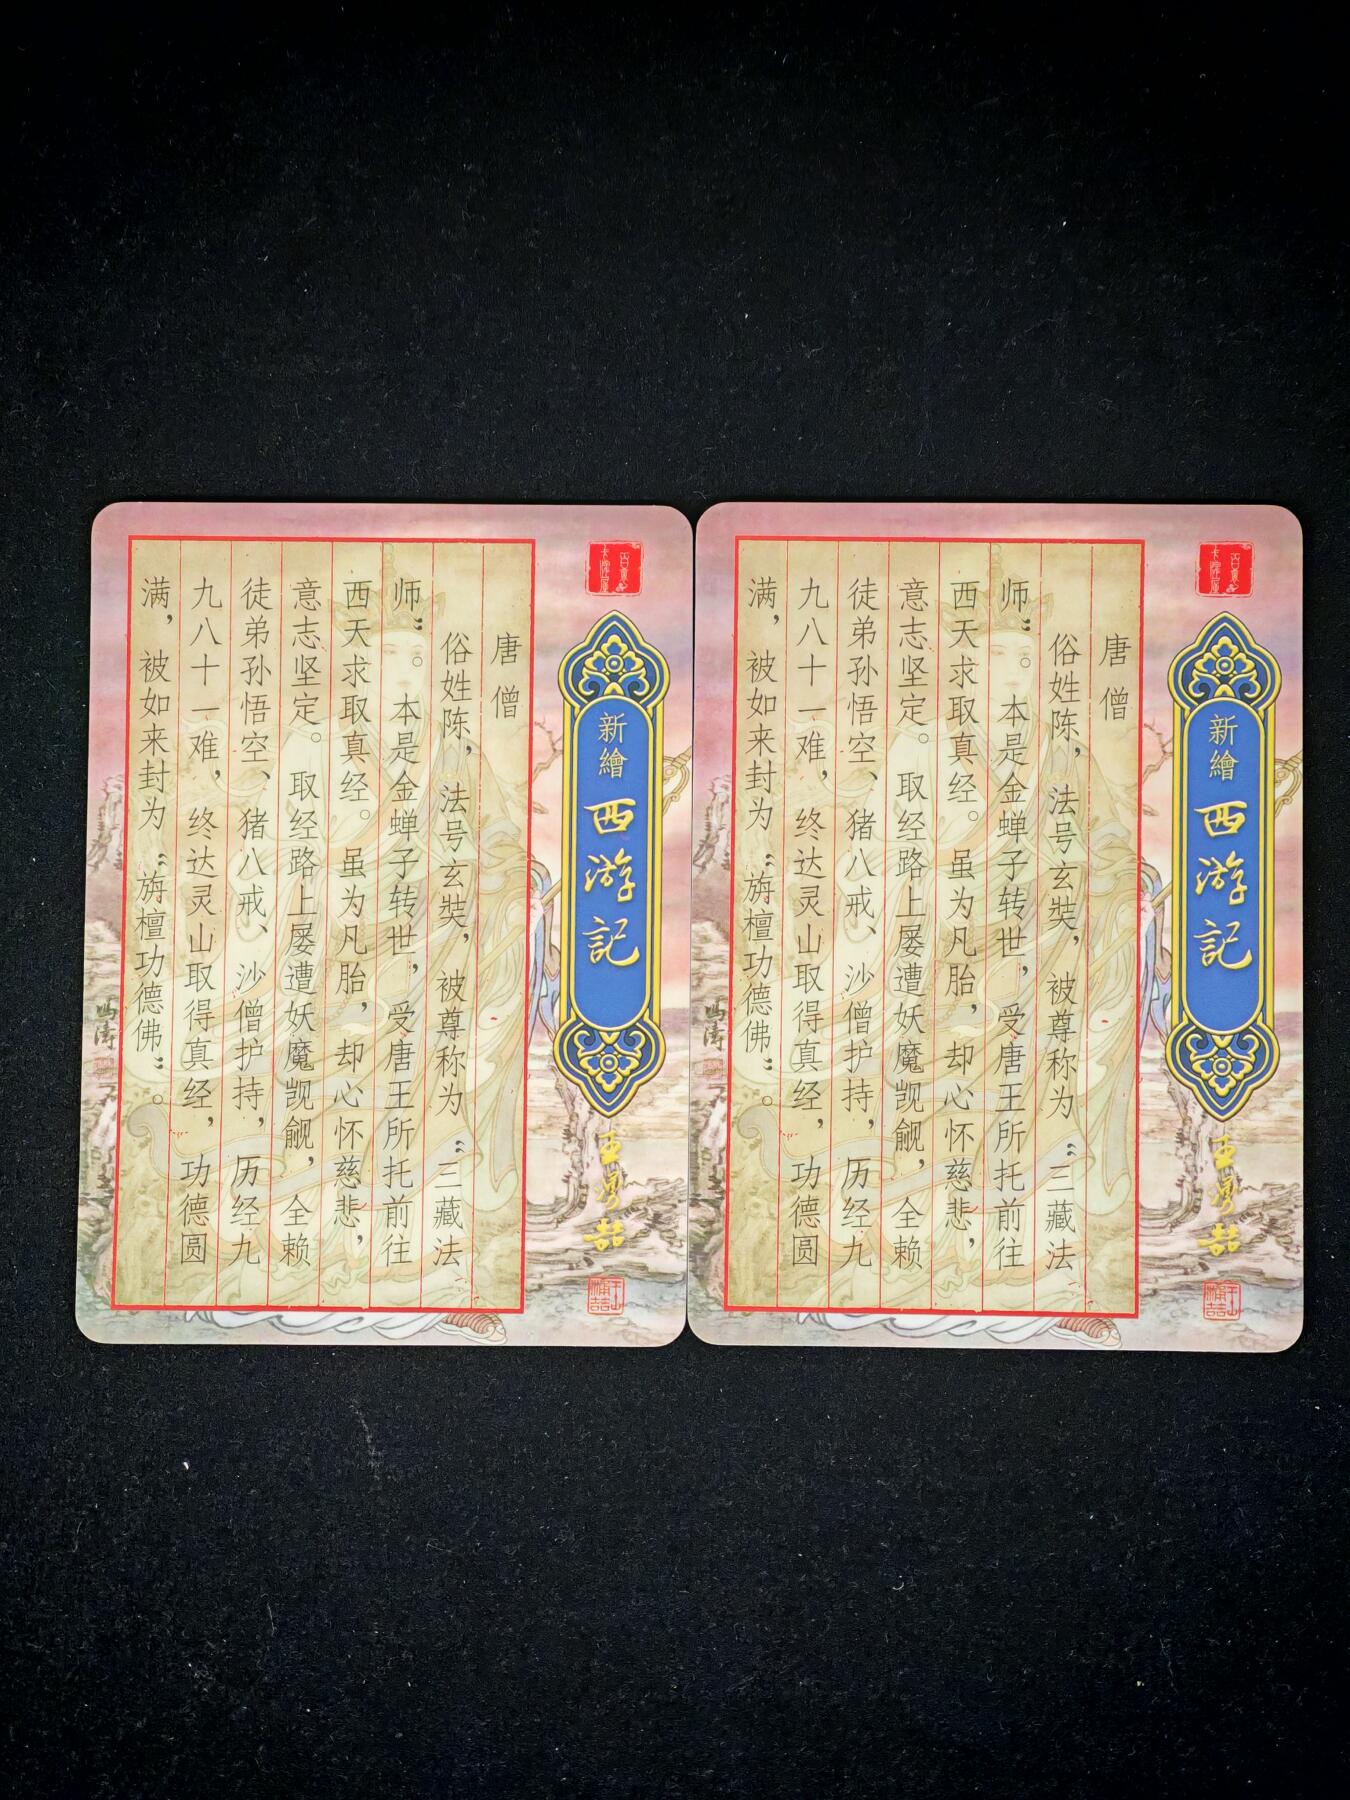 新繪
西游記
王勇喆
唐僧
俗姓陈，法号玄奘，被尊称为“三藏法
师”。本是金蝉子转世，受唐王所托前往
西天求取真经。虽为凡胎，却心怀慈悲，
意志坚定。取经路上屡遭妖魔觊觎，全赖
徒弟孙悟空、猪八戒、沙僧护持，历经九
九八十一难，终达灵山取得真经，功德圆
满，被如来封为“旃檀功德佛”。
新繪
西游記
王勇喆
唐僧
俗姓陈，法号玄奘，被尊称为“三藏法
师”。本是金蝉子转世，受唐王所托前往
西天求取真经。虽为凡胎，却心怀慈悲，
意志坚定。取经路上屡遭妖魔觊觎，全赖
徒弟孙悟空、猪八戒、沙僧护持，历经九
九八十一难，终达灵山取得真经，功德圆
满，被如来封为“旃檀功德佛”。